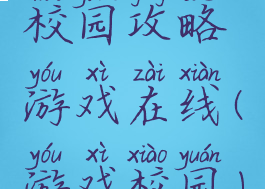 校园攻略
yóu xì zài xiàn
游戏在线(
yóu xì xiào yuán
游戏校园)